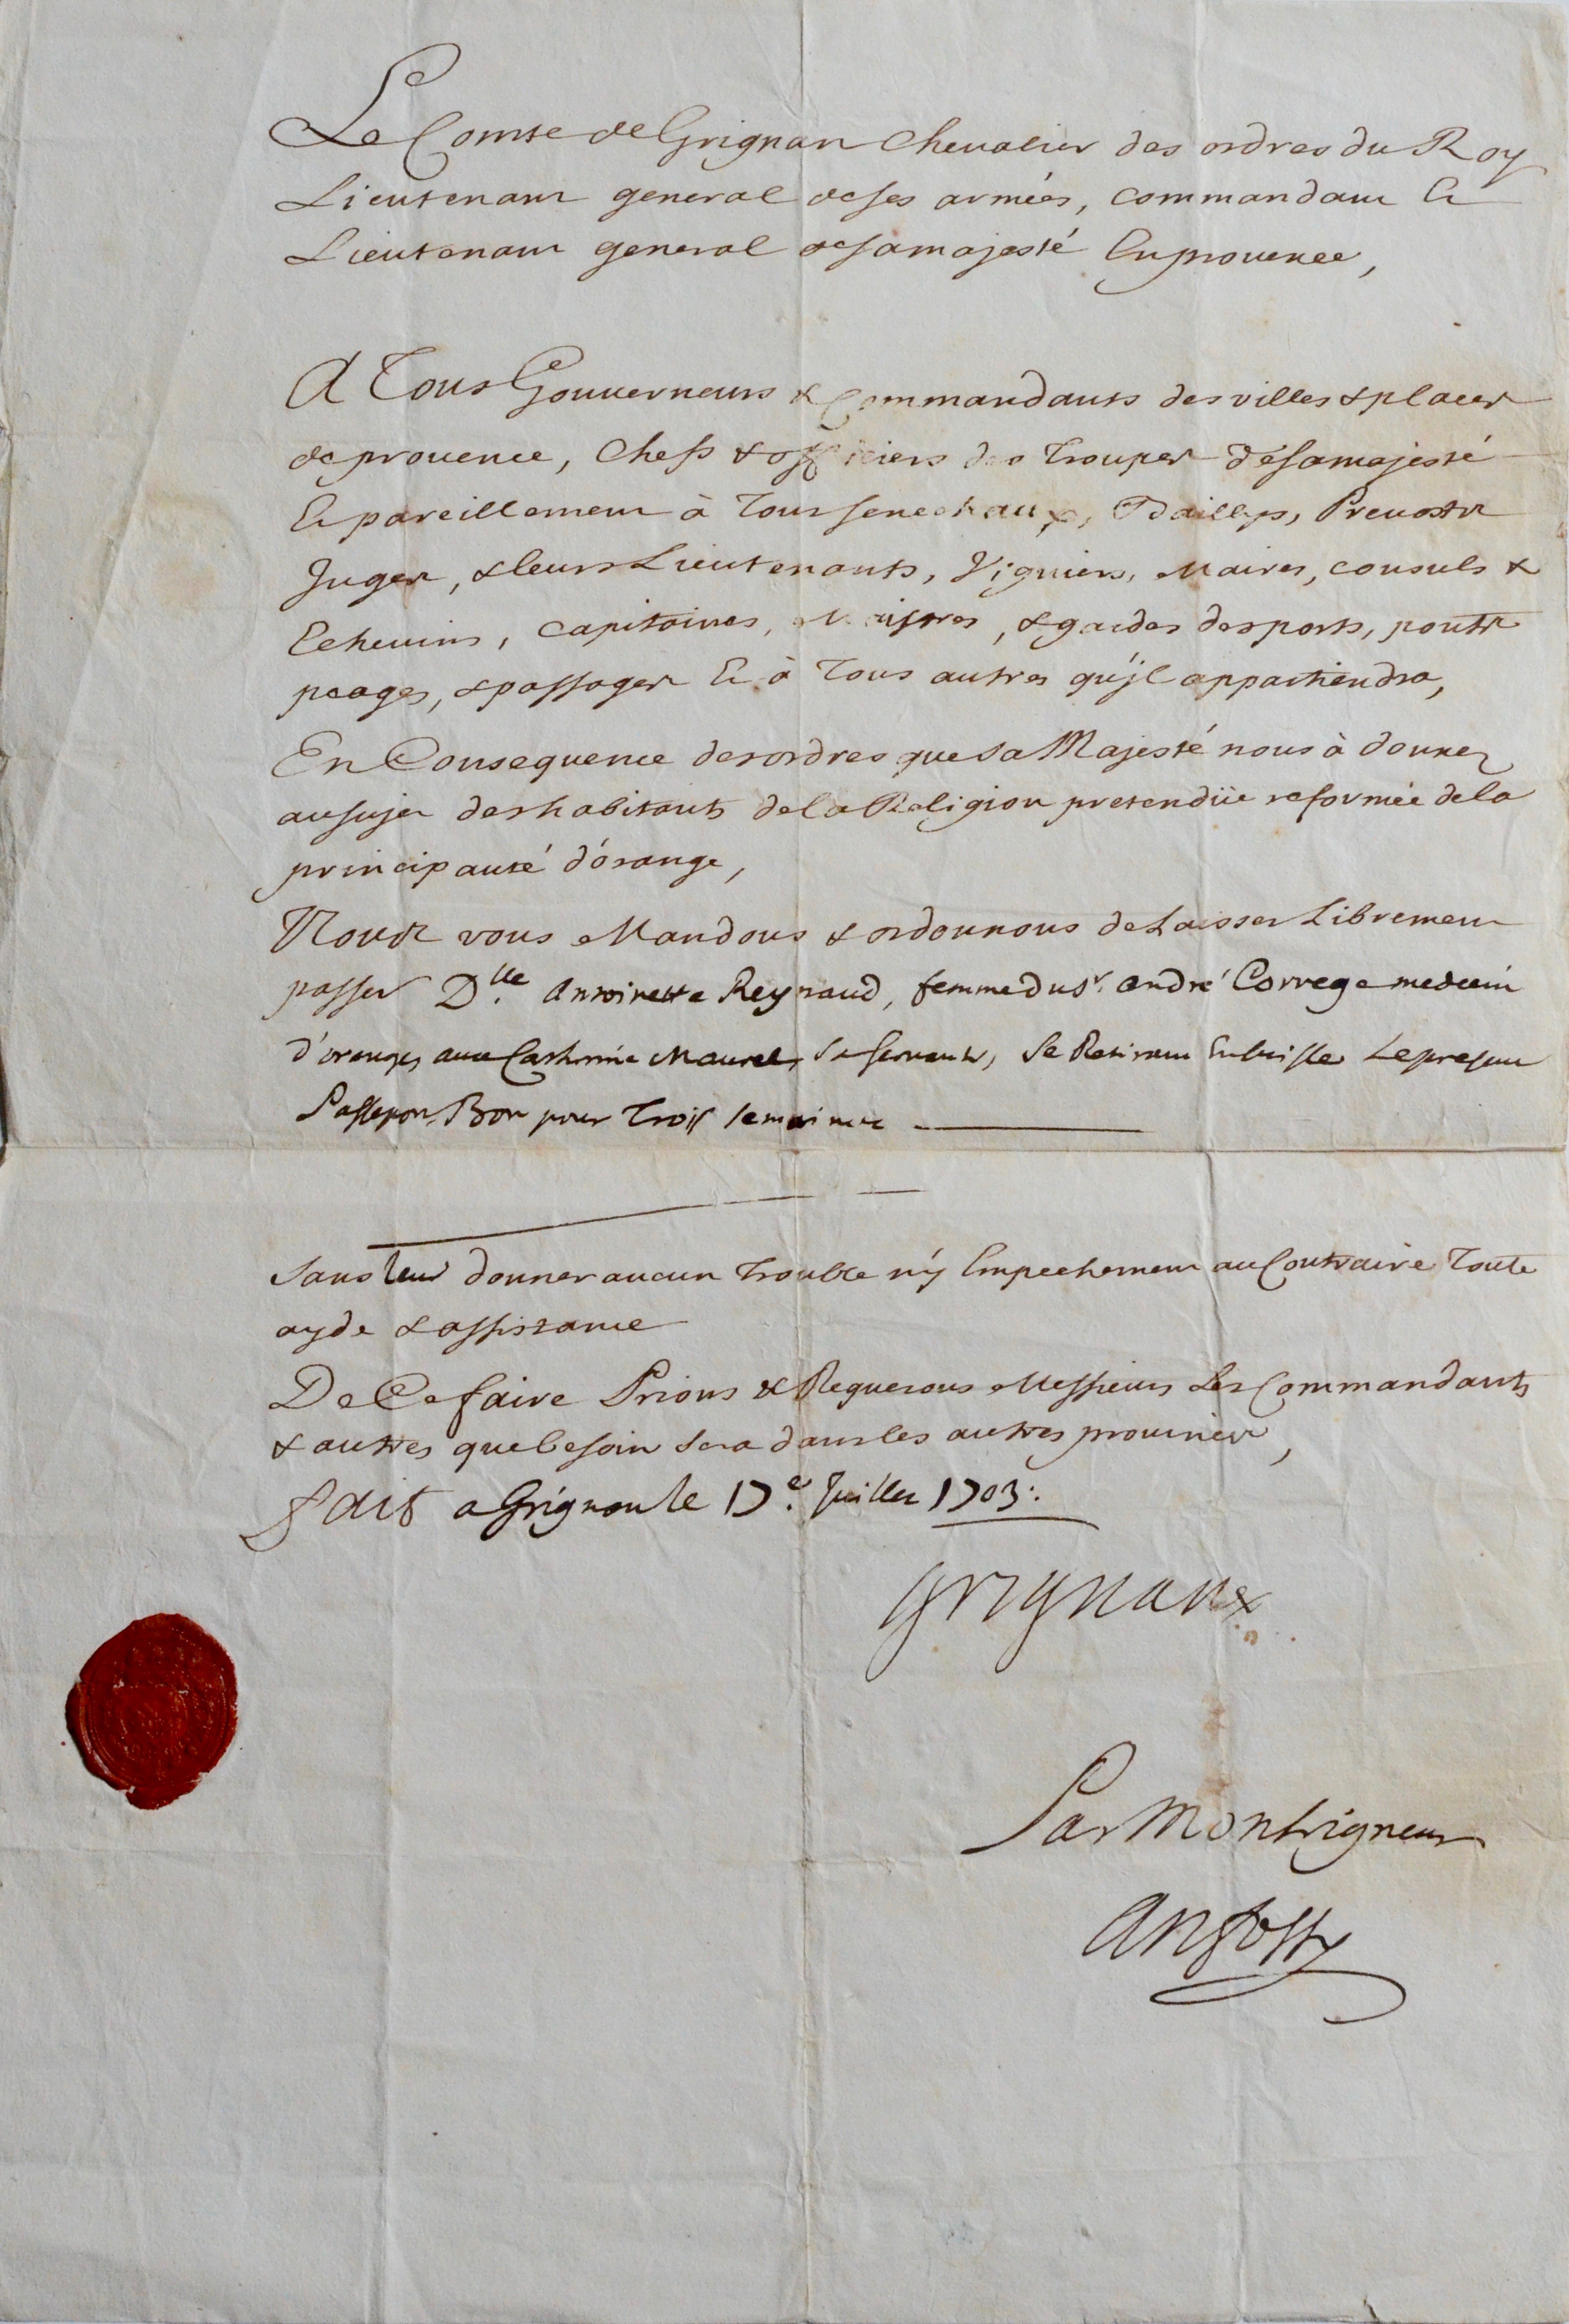 Le Comte de Grignan Chevalier des ordres du Roy
Lieutenant general de ses armées, commandant Et
Lieutenant general de sa majesté En provence,
A Tous Gouverneurs & Commandants des villes & places
de provence, Chefs & officiers des Troupes de sa majesté
Et pareillement à Tous senechaux, Baillys, Prevosts
Juges, & leurs Lieutenants, Viguiers, Maires, consuls &
Echevins, Capitaines, Maistres, & gardes des ports, ponts
peages, & passages Et à Tous autres qu'jl appartiendra,
En Consequence des ordres que sa Majesté nous à donnez
au sujet des habitants de la Religion pretendüe reformée de la
principauté d'órange,
Nous vous Mandons & ordonnons de Laisser Librement
passer D.lle Antoinette Reynaud, femme du sr. André Correge medecin
d'oranges avec Catherine Maurel, sa servante, Se Retirant En suisse Le present
Passeport Bon pour Trois semaines
Sans leur donner aucun Trouble n'y Empechement au Contraire Toute
ayde & assistance
De Ce faire Prions & Requerons Messieurs Les Commandants
& autres que besoin sera dans les autres provinces,
fait a Grignan le 17e. Juillet 1703.
Grignan
Par Monseigneur
Anfossy